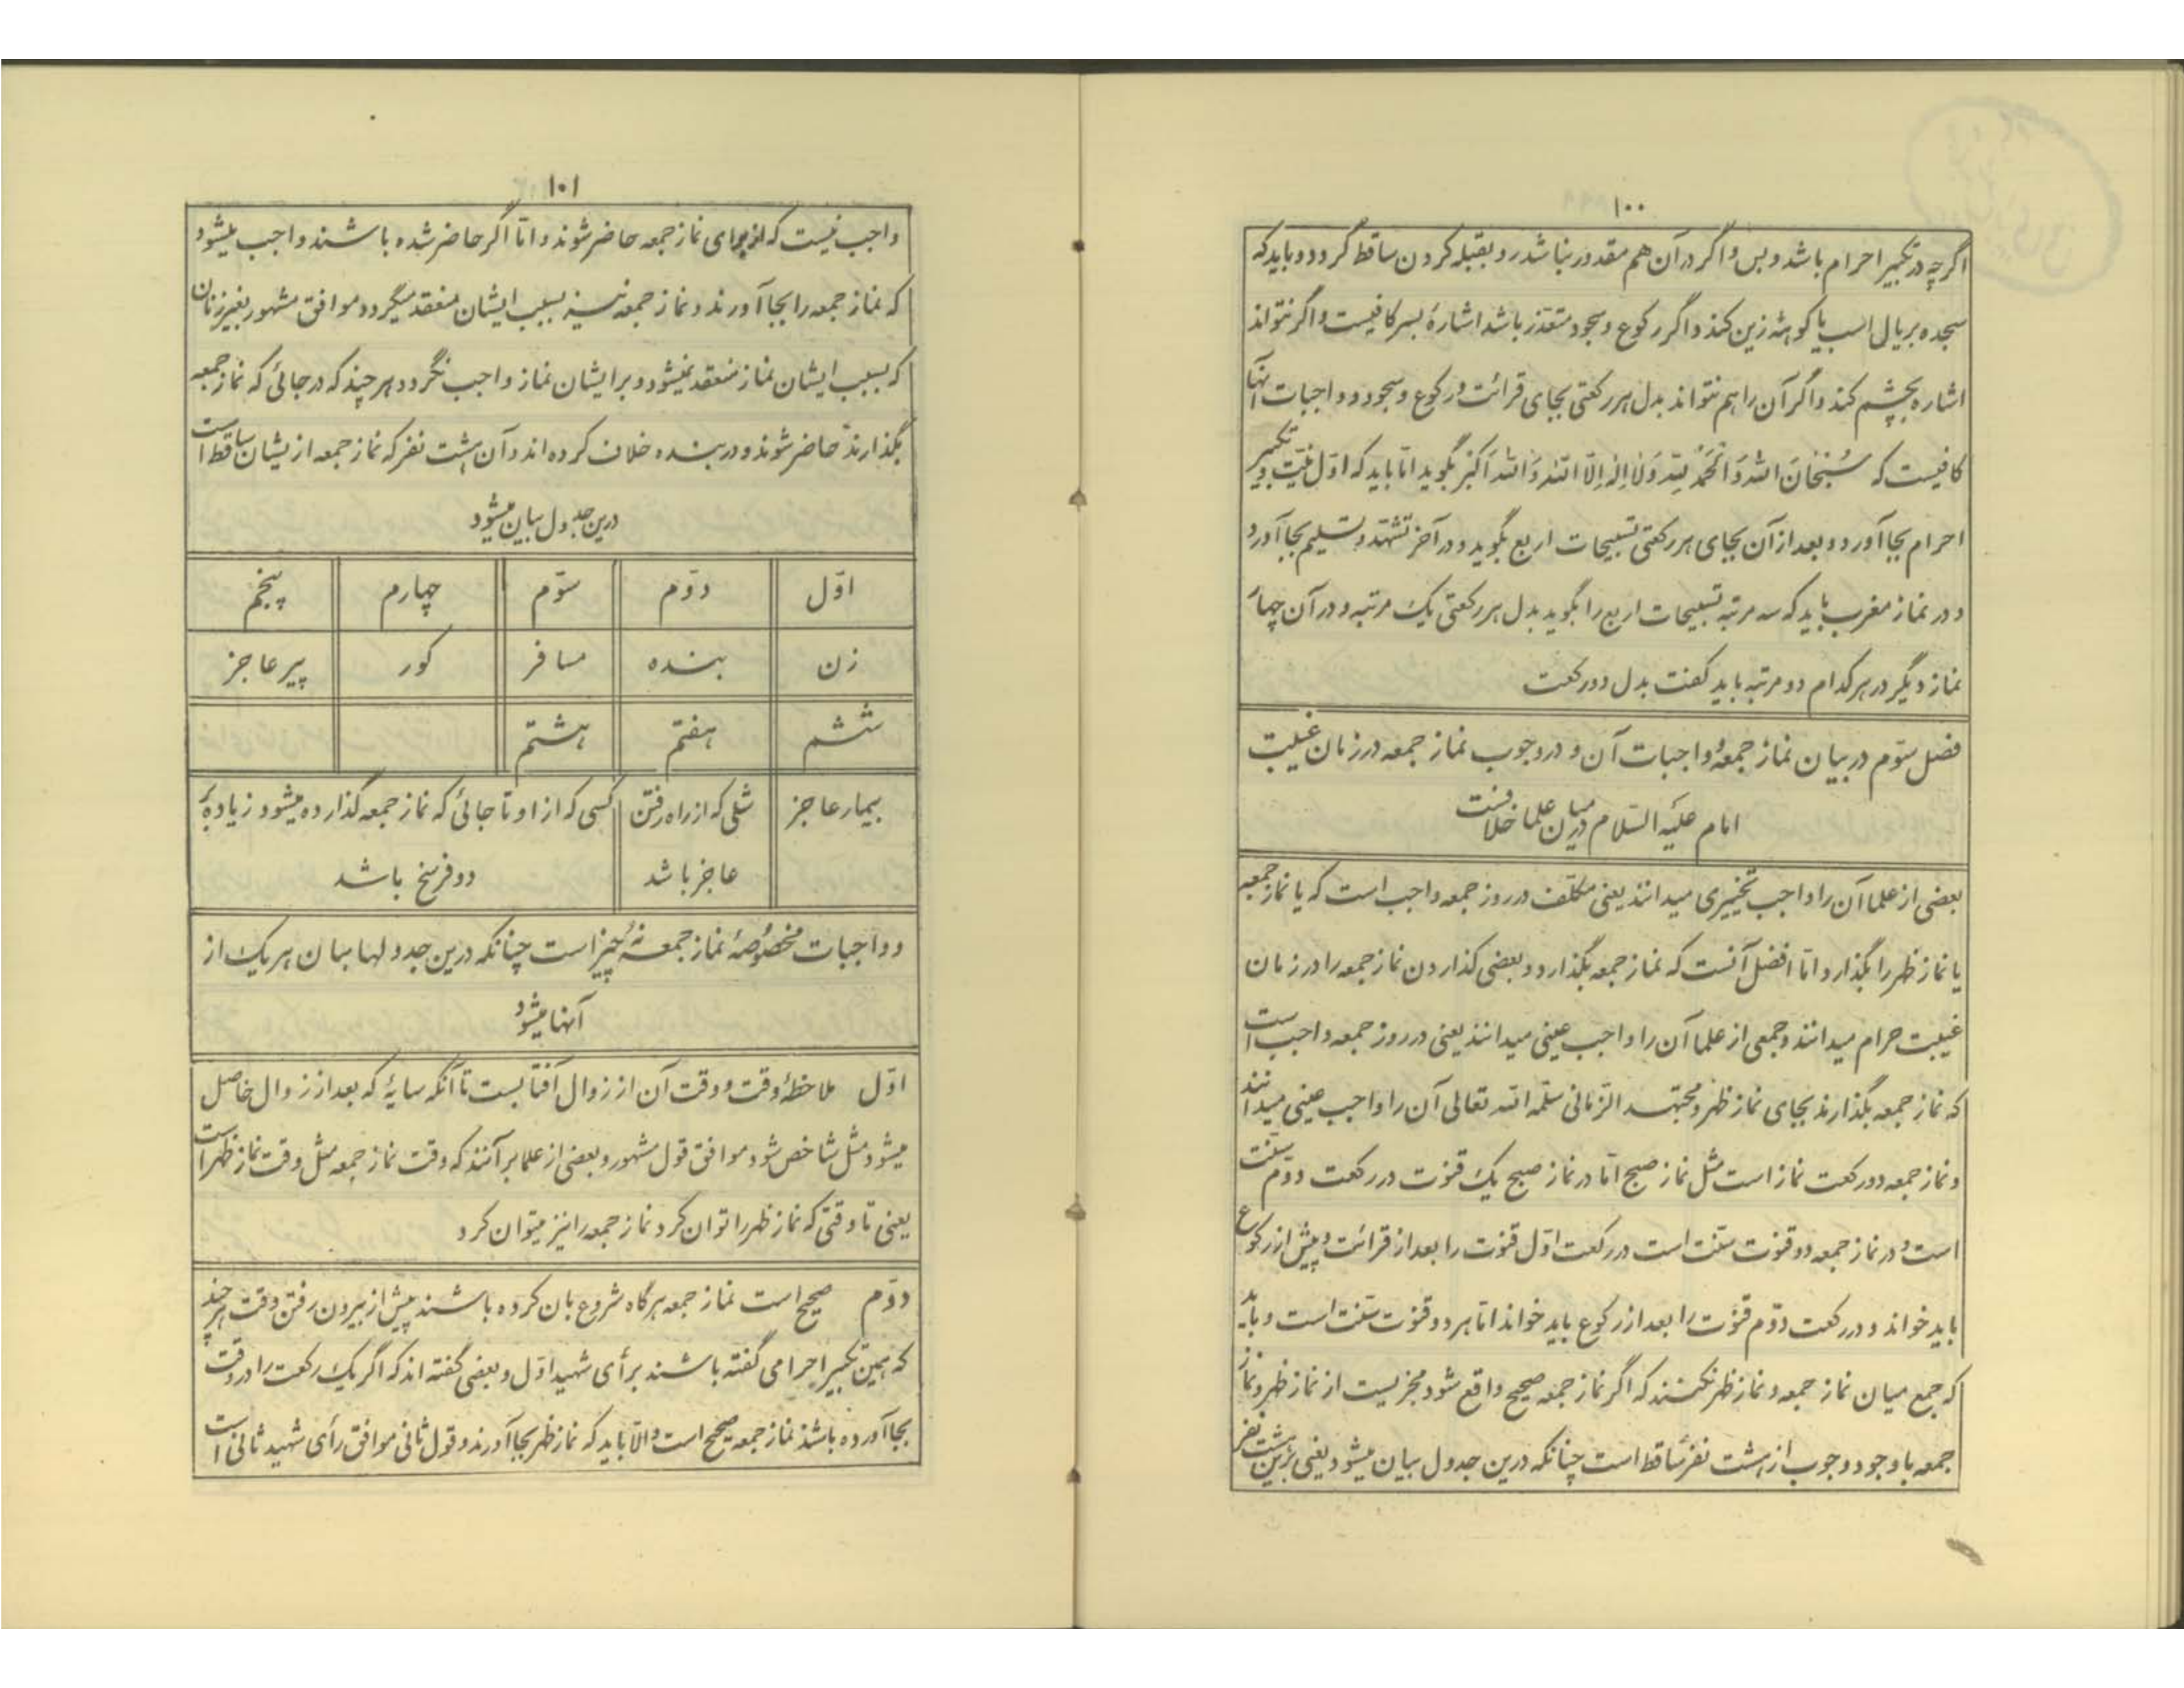 ۱۰۰
اگرچه در تکبیر احرام باشد و بس و اگر در آن هم مقدور نباشد رو بقبله کردن ساقط گردد و باید که
سجده بر یال اسب یا کوههٔ زین کند و اگر رکوع و سجود متعذر باشد اشارهٔ بسر کافیست و اگر نتواند
اشاره بچشم کند و اگر آن را هم نتواند بدل هر رکعتی بجای قرائت و رکوع و سجود و واجبات آنها
کافیست که سُبْحَانَ اللّٰه وَالْحَمْدُ لِلّٰه وَلَا إِلٰهَ إِلَّا اللّٰه وَاللّٰه أَكْبَر بگوید امّا باید که اوّل نیّت و تکبیر
احرام بجا آورد و بعد از آن بجای هر رکعتی تسبیحات اربع بگوید و در آخر تشهّد و تسلیم بجا آورد
و در نماز مغرب باید که سه مرتبه تسبیحات اربع را بگوید بدل هر رکعتی یک مرتبه و در آن چهار
نماز دیگر در هر کدام دو مرتبه باید گفت بدل دو رکعت
فصل سوّم در بیان نماز جمعه و واجبات آن و در وجوب نماز جمعه در زمان غیبت
امام علیه السّلام در میان علما خلافست
بعضی از علما آن را واجب تخییری میدانند یعنی مکلّف در روز جمعه واجب است که یا نماز جمعه
یا نماز ظهر را بگذارد امّا افضل آنست که نماز جمعه بگذارد و بعضی گذاردن نماز جمعه را در زمان
غیبت حرام میدانند و جمعی از علما آن را واجب عینی میدانند یعنی در روز جمعه واجب است
که نماز جمعه بگذارند بجای نماز ظهر و مجتهد الزمانی سلّمه اللّه تعالی آن را واجب عینی میدانند
و نماز جمعه دو رکعت نماز است مثل نماز صبح امّا در نماز صبح یک قنوت در رکعت دوّم سنّت
است و در نماز جمعه دو قنوت سنّت است در رکعت اوّل قنوت را بعد از قرائت و پیش از رکوع
باید خواند و در رکعت دوّم قنوت را بعد از رکوع باید خواند امّا هر دو قنوت سنّت است و باید
که جمع میان نماز جمعه و نماز ظهر نکنند که اگر نماز جمعه صحیح واقع شود مجزیست از نماز ظهر و نماز
جمعه با وجود وجوب از هشت نفر ساقط است چنانکه درین جدول بیان میشود یعنی برین هشت نفر
۱۰۱
واجب نیست که از برای نماز جمعه حاضر شوند و امّا اگر حاضر شده باشند واجب میشود
که نماز جمعه را بجا آورند و نماز جمعه نیز بسبب ایشان منعقد میگردد موافق مشهور بغیر زنان
که بسبب ایشان نماز منعقد نمیشود و بر ایشان نماز واجب نگردد هر چند که در جائی که نماز جمعه
بگذارند حاضر شوند و در بنده خلاف کرده اند و آن هشت نفر که نماز جمعه از یشان ساقط است
درین جدول بیان میشود
اوّل دوّم سوّم چهارم پنجم
زن بنده مسافر کور پیر عاجز
ششم هفتم هشتم
بیمار عاجز شلی که از راه رفتن کسی که از او تا جائی که نماز جمعه گذارده میشود زیاده بر
عاجز باشد دو فرسخ باشد
و واجبات مخصوصهٔ نماز جمعه نُه چیز است چنانکه درین جدولها بیان هر یک از
آنها میشود
اوّل ملاحظهٔ وقت و وقت آن از زوال آفتابست تا آنکه سایهٔ که بعد از زوال حاصل
میشود مثل شاخص شود موافق قول مشهور و بعضی از علما بر آنند که وقت نماز جمعه مثل وقت نماز ظهر است
یعنی تا وقتی که نماز ظهر را توان کرد نماز جمعه را نیز میتوان کرد
دوّم صحیح است نماز جمعه هر گاه شروع بان کرده باشند پیش از بیرون رفتن وقت هر چند
که همین تکبیر احرامی گفته باشند برأی شهید اوّل و بعضی گفته اند که اگر یک رکعت را در وقت
بجا آورده باشند نماز جمعه صحیح است و الّا باید که نماز ظهر بجا آورند و قول ثانی موافق رأی شهید ثانی است